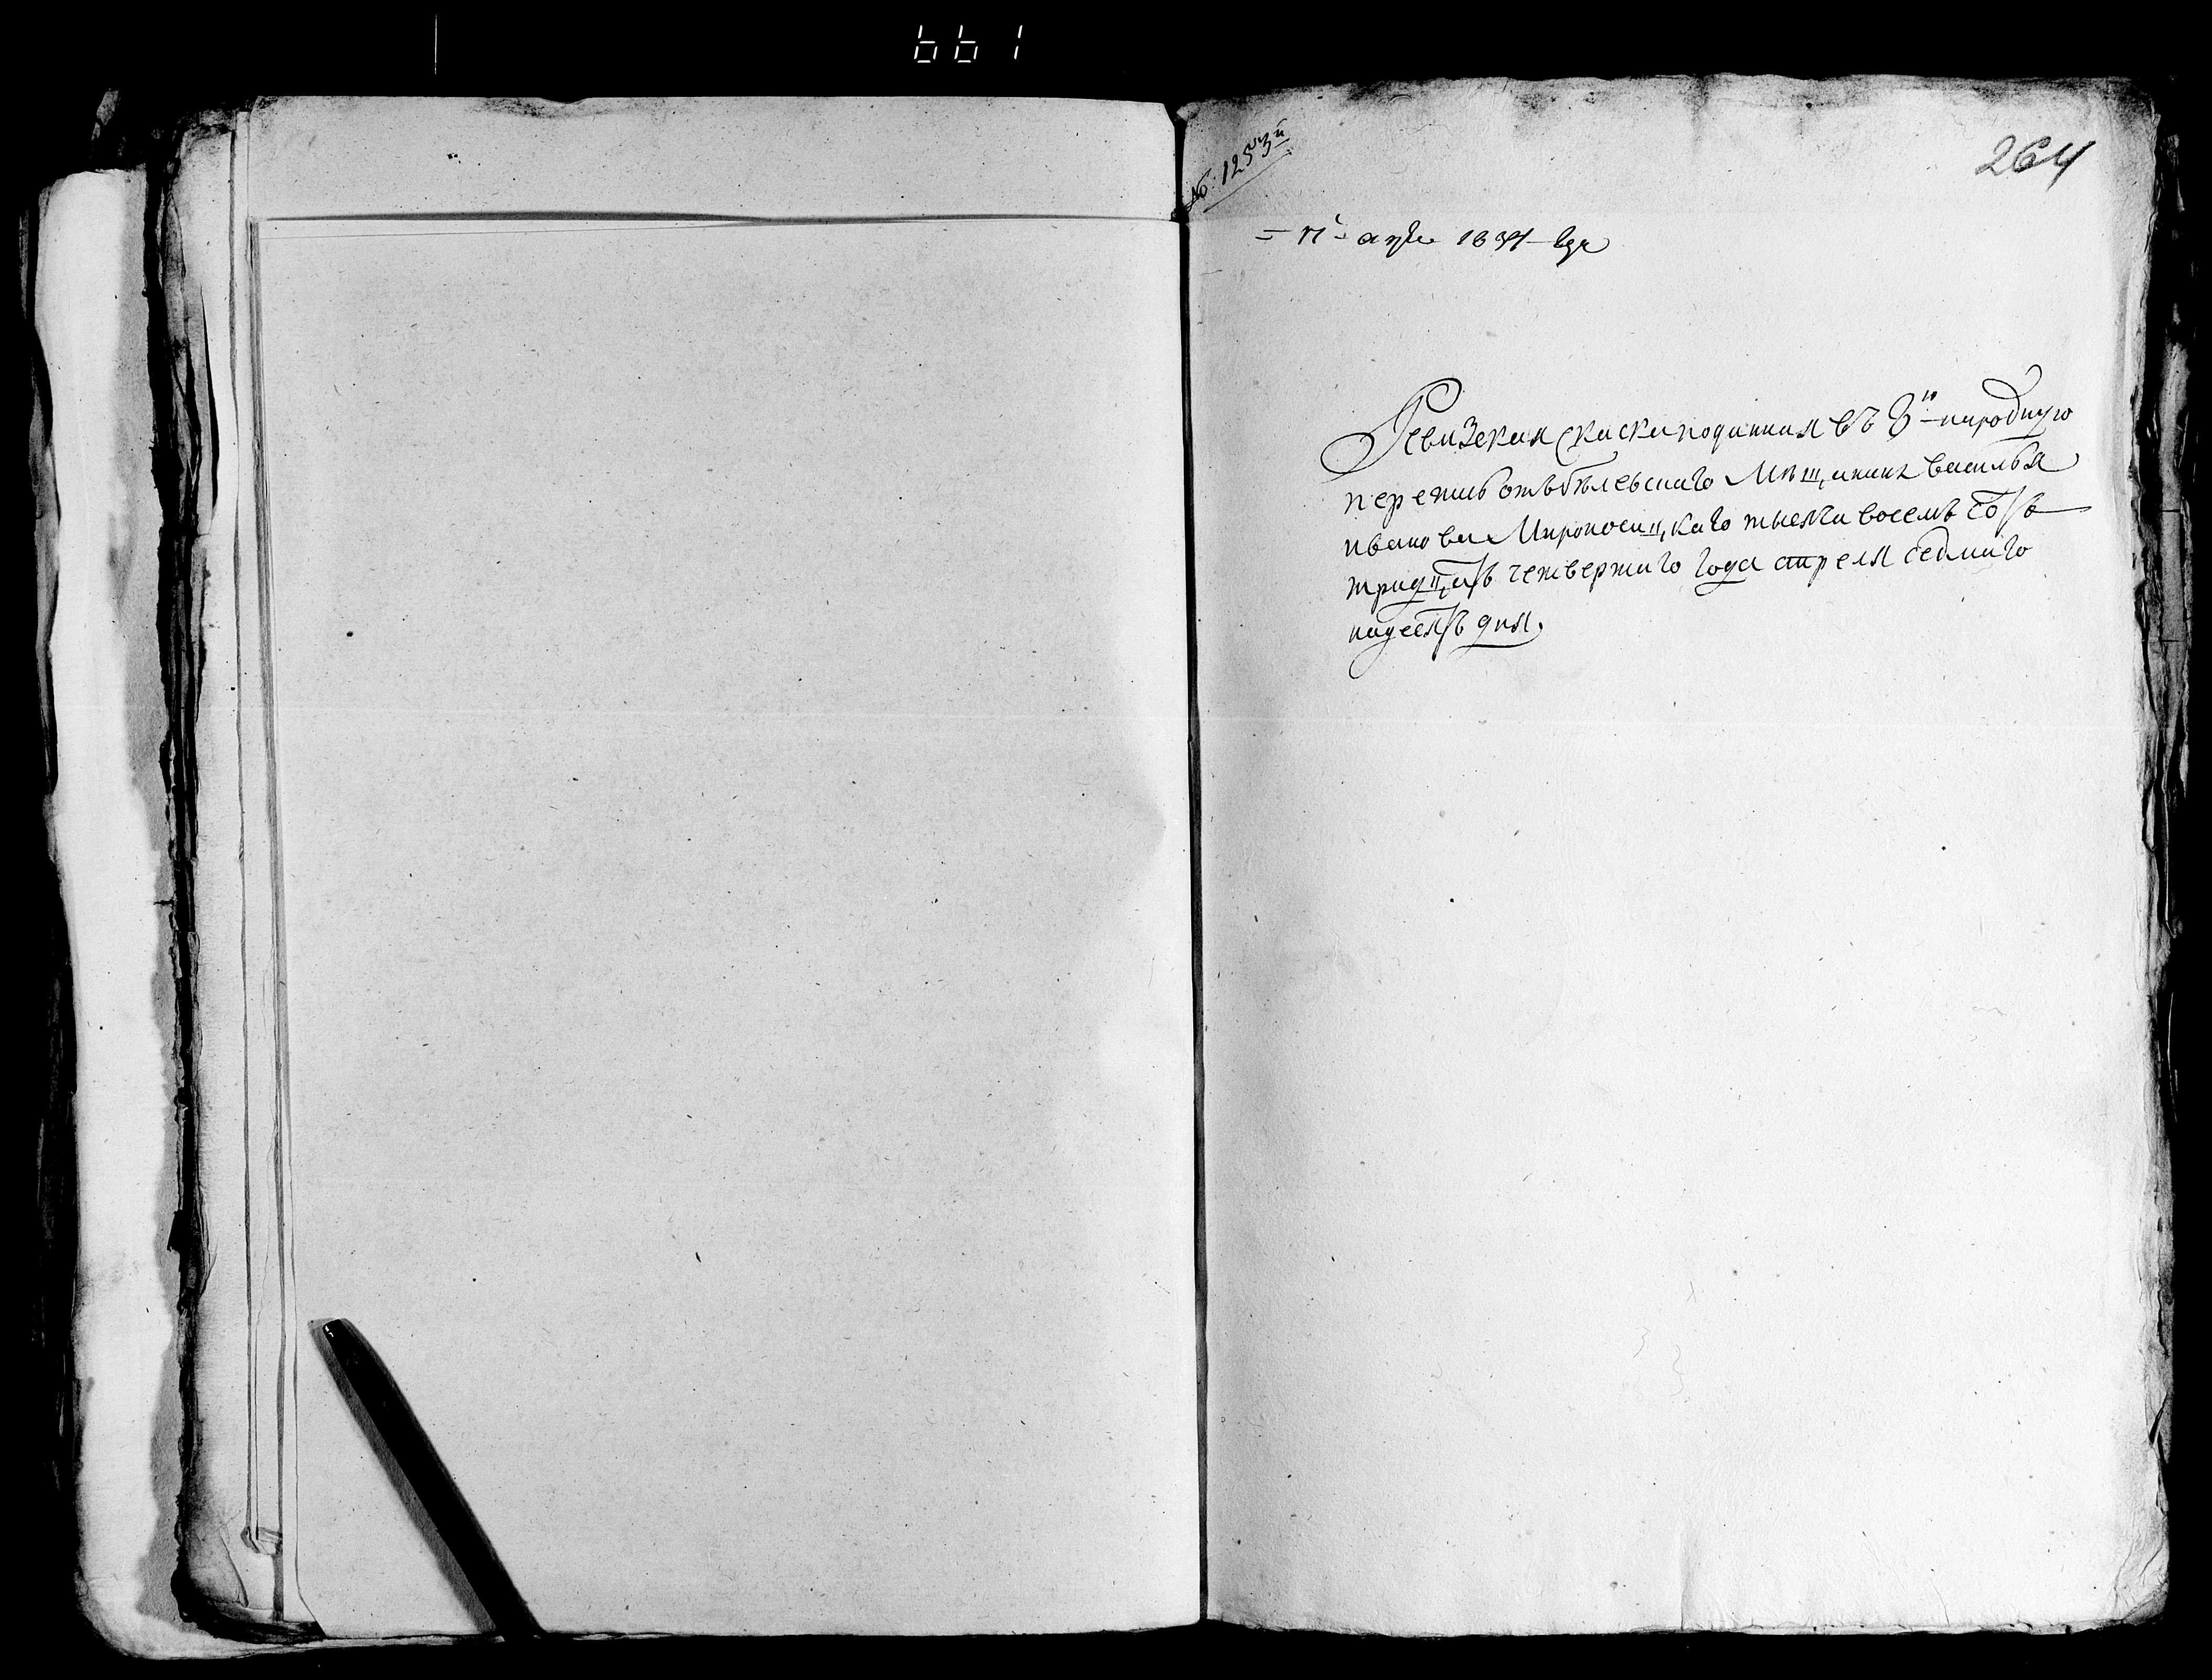 661
№: 1253й
264
= 17 = апре 1834 года
Ревизская скаска поданная въ 8ю народную
перепись отъ бѣлевскаго мѣщанина василья
иванова Мироносицкаго тысяча восемь сотъ
тридцать четвертаго года апреля седмаго
надесять дня.